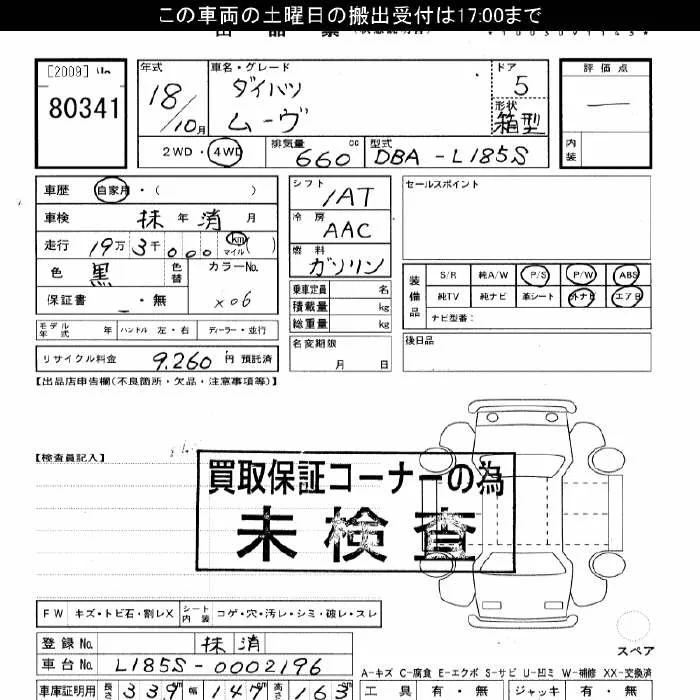 この車両の土曜日の搬出受付は17:00まで
[2009]
80341
年式 18/10月
車名・グレード ダイハツ ムーヴ
ドア 5
形状 箱型
2WD・4WD
排気量 660 cc
型式 DBA-L185S
評価点 —
内装
車歴 自家用・( )
車検 抹年消月
走行 19万3千000 km マイル ( )
色 黒 色替 カラーNo.
保証書 ・無 X06
モデル年式 年 ハンドル 左・右 ディーラー・並行
リサイクル料金 9,260円 預託済
シフト IAT
冷房 AAC
燃料 ガソリン
乗車定員 名
積載量 kg
総重量 kg
名変期限 月 日
セールスポイント
装備品 S/R 純A/W P/S P/W ABS
純TV 純ナビ 革シート 外ナビ エアB
ナビ型番:
後日品
【出品店申告欄(不良箇所・欠品・注意事項等)】
【検査員記入】
買取保証コーナーの為
未検査
FW キズ・トビ石・割レX シート内装 コゲ・穴・汚レ・シミ・破レ・スレ
スペア
登録No. 抹消
車台No. L185S-0002196
A-キズ C-腐食 E-エクボ S-サビ U-凹ミ W-補修 XX-交換済
車庫証明用 長さ 339 幅 147 高さ 163
工具 有・無 ジャッキ 有・無